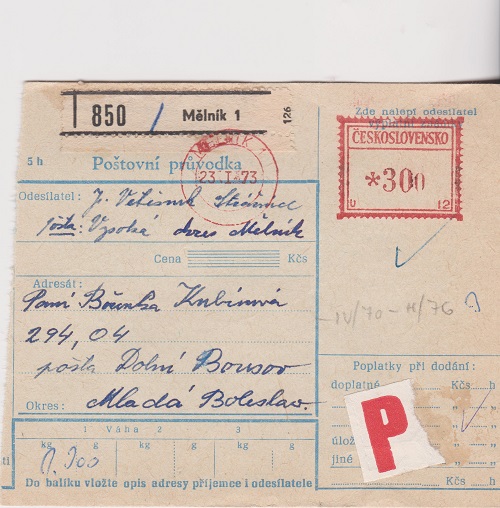 850 / Mělník 1
126
Zde nalepí odesílatel
výplatní známku
ČESKOSLOVENSKO
*300
U 12
MĚLNÍK 1
23.I.73
5 h Poštovní průvodka
Odesílatel: J.
pošta: Vysoká okres Mělník
Cena Kčs
Adresát:
Paní Boženka Kubínová
294,04
pošta Dolní Bousov
Okres: Mladá Boleslav.
IV/70 - H/76
Poplatky při dodání:
doplatné Kčs h
P
Kčs h
úlož Kčs h
jiné Kčs h
1 Váha 2 3
kg g kg g kg g
ti
Do balíku vložte opis adresy příjemce i odesílatele